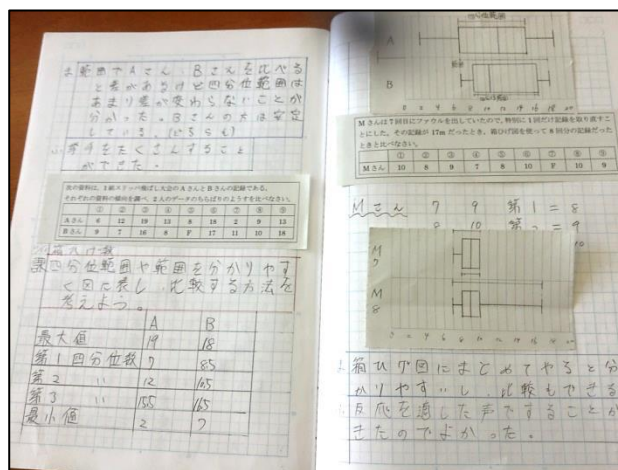 ま 範囲でAさん、Bさんを比べる
と差があるけど四分位範囲は
あまり差が変わらないことが
分かった。Bさんの方は安定
している。(どちらも)
ふ 挙手をたくさんすること
ができた。
次の資料は、1組ステップ幅とび大会のAさんとBさんの記録である。
それぞれの資料の傾向を調べ、2人のデータのちらばりのようすを比べなさい。
① ② ③ ④ ⑤ ⑥ ⑦ ⑧ ⑨
Aさん 6 12 19 13 8 18 2 9 13
Bさん 9 7 16 8 F 17 11 10 18
四分位範囲や範囲を分かりやす
く図に表し、比較する方法を
考えよう。
A B
最大値 19 18
第1四分位数 7 8.5
第2 〃 12 10.5
第3 〃 15.5 16.5
最小値 2 7
四分位範囲
A
B
Mさんは7回目にファウルを出していたので、特別に1回だけ記録を取り直すこ
とにした。その記録が17mだったとき、箱ひげ図を使って8回分の記録だった
ときと比べなさい。
① ② ③ ④ ⑤ ⑥ ⑦ ⑧ ⑨
Mさん 10 8 9 7 8 10 F 10 9
Mさん 7 9 第1=8
8 10 第2=9
10
M
9
M
8
ま 箱ひげ図にまとめてやると分
かりやすいし、比較もできる
反応を適した声ですることが
きたのでよかった。